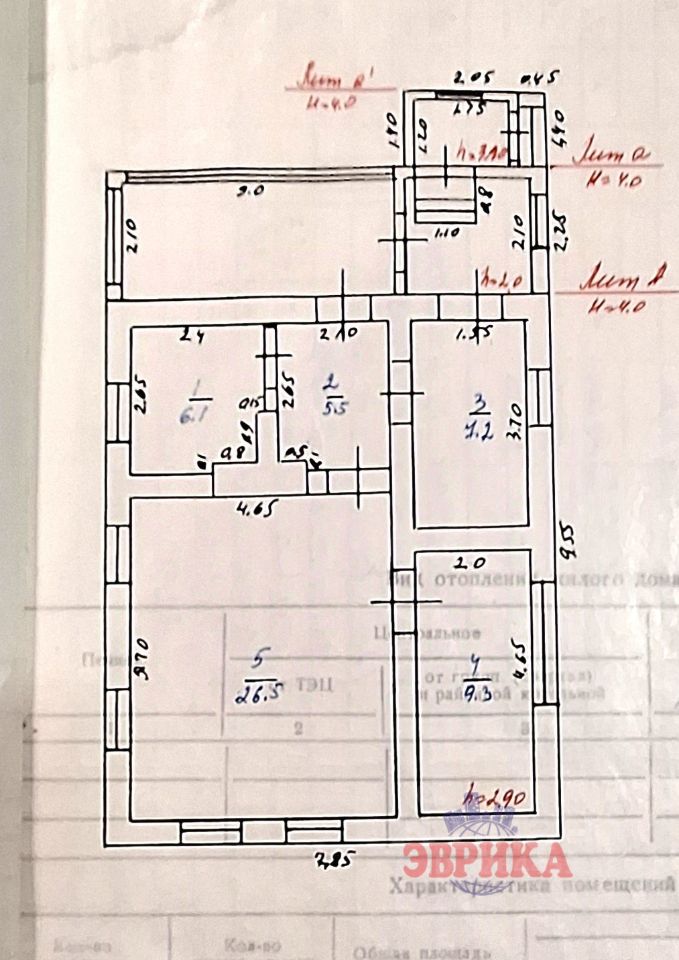 Лит а'
Н=4.0
2.05
0.45
1.75
1.40
1.20
4.40
h=3.10
Лит а
Н=4.0
9.0
2.10
0.8
1.10
2.10
2.25
h=2.0
Лит А
Н=4.0
2.4
2.10
1.55
2.65
1
6.1
0.15
2.65
2
5.5
3
7.2
3.70
0.9
0.8
0.5
4.65
9.55
2.0
Вид отопления жилого дома
Центральное
5
26.5
от ТЭЦ
4
9.3
4.65
2
3
h=2.90
ЭВРИКА
7.85
Характеристика помещений
Кол-во
Кол-во
Общая площадь